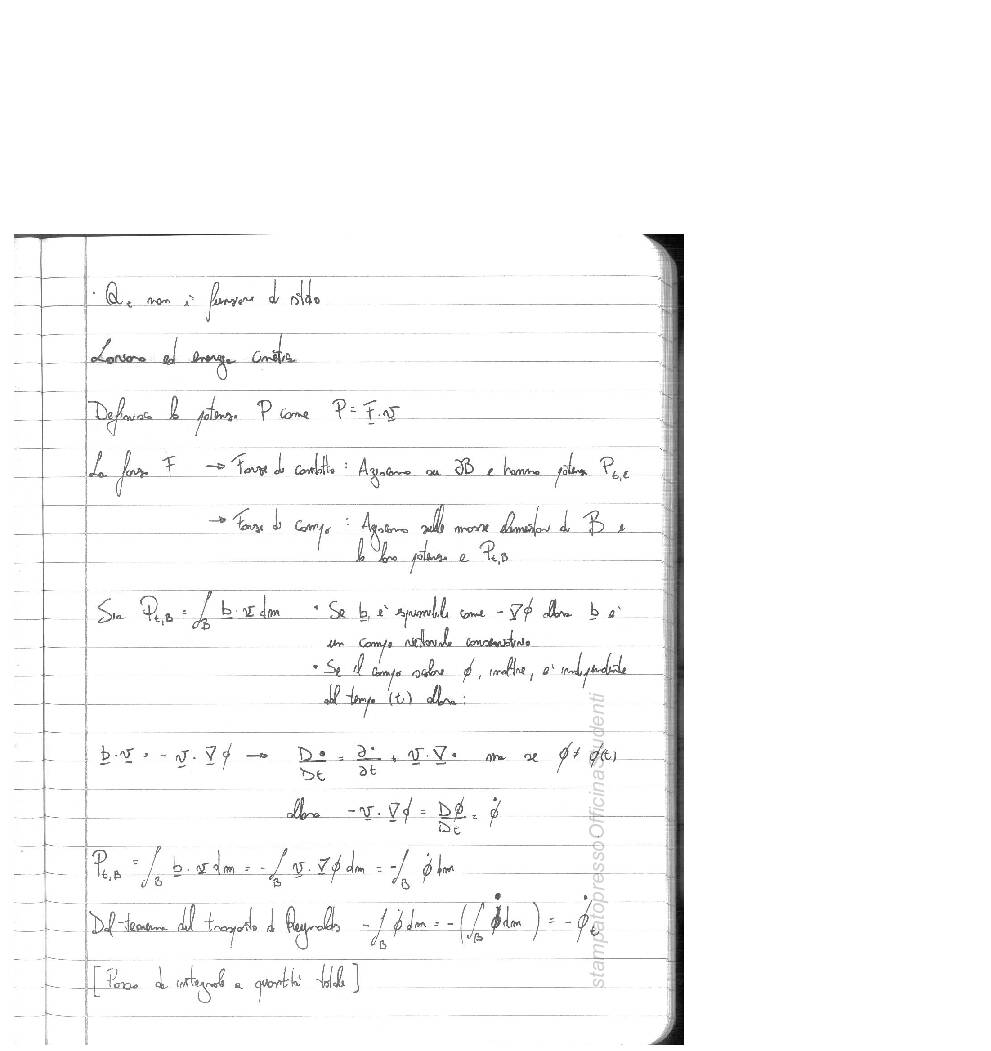 · Qₜ non è funzione di stato
Lavoro ed energia cinetica
Definisco la potenza P come P = F · v
La forza F → Forze di contatto : Agiscono su ∂B e hanno potenza Pₜ,ε
→ Forze di campo : Agiscono sulle masse elementari di B e
la loro potenza è Pₜ,B
Sia Pₜ,B = ∫_B b · v dm • Se b è esprimibile come - ∇ϕ allora b è
un campo vettoriale conservativo
• Se il campo scalare ϕ, inoltre, è indipendente
dal tempo (t) allora :
b · v = - v · ∇ϕ → D•/Dt = ∂•/∂t + v · ∇• ma se ϕ ≠ ϕ(t)
allora - v · ∇ϕ = Dϕ/Dt = ϕ̇
Pₜ,B = ∫_B b · v dm = - ∫_B v · ∇ϕ dm = - ∫_B ϕ̇ dm
Dal teorema del trasporto di Reynolds - ∫_B ϕ̇ dm = - (∫_B ϕ dm)˙ = - ϕ̇ₜ
[Passo da integrale a quantità totale]
stampatopressoOfficinaStudenti